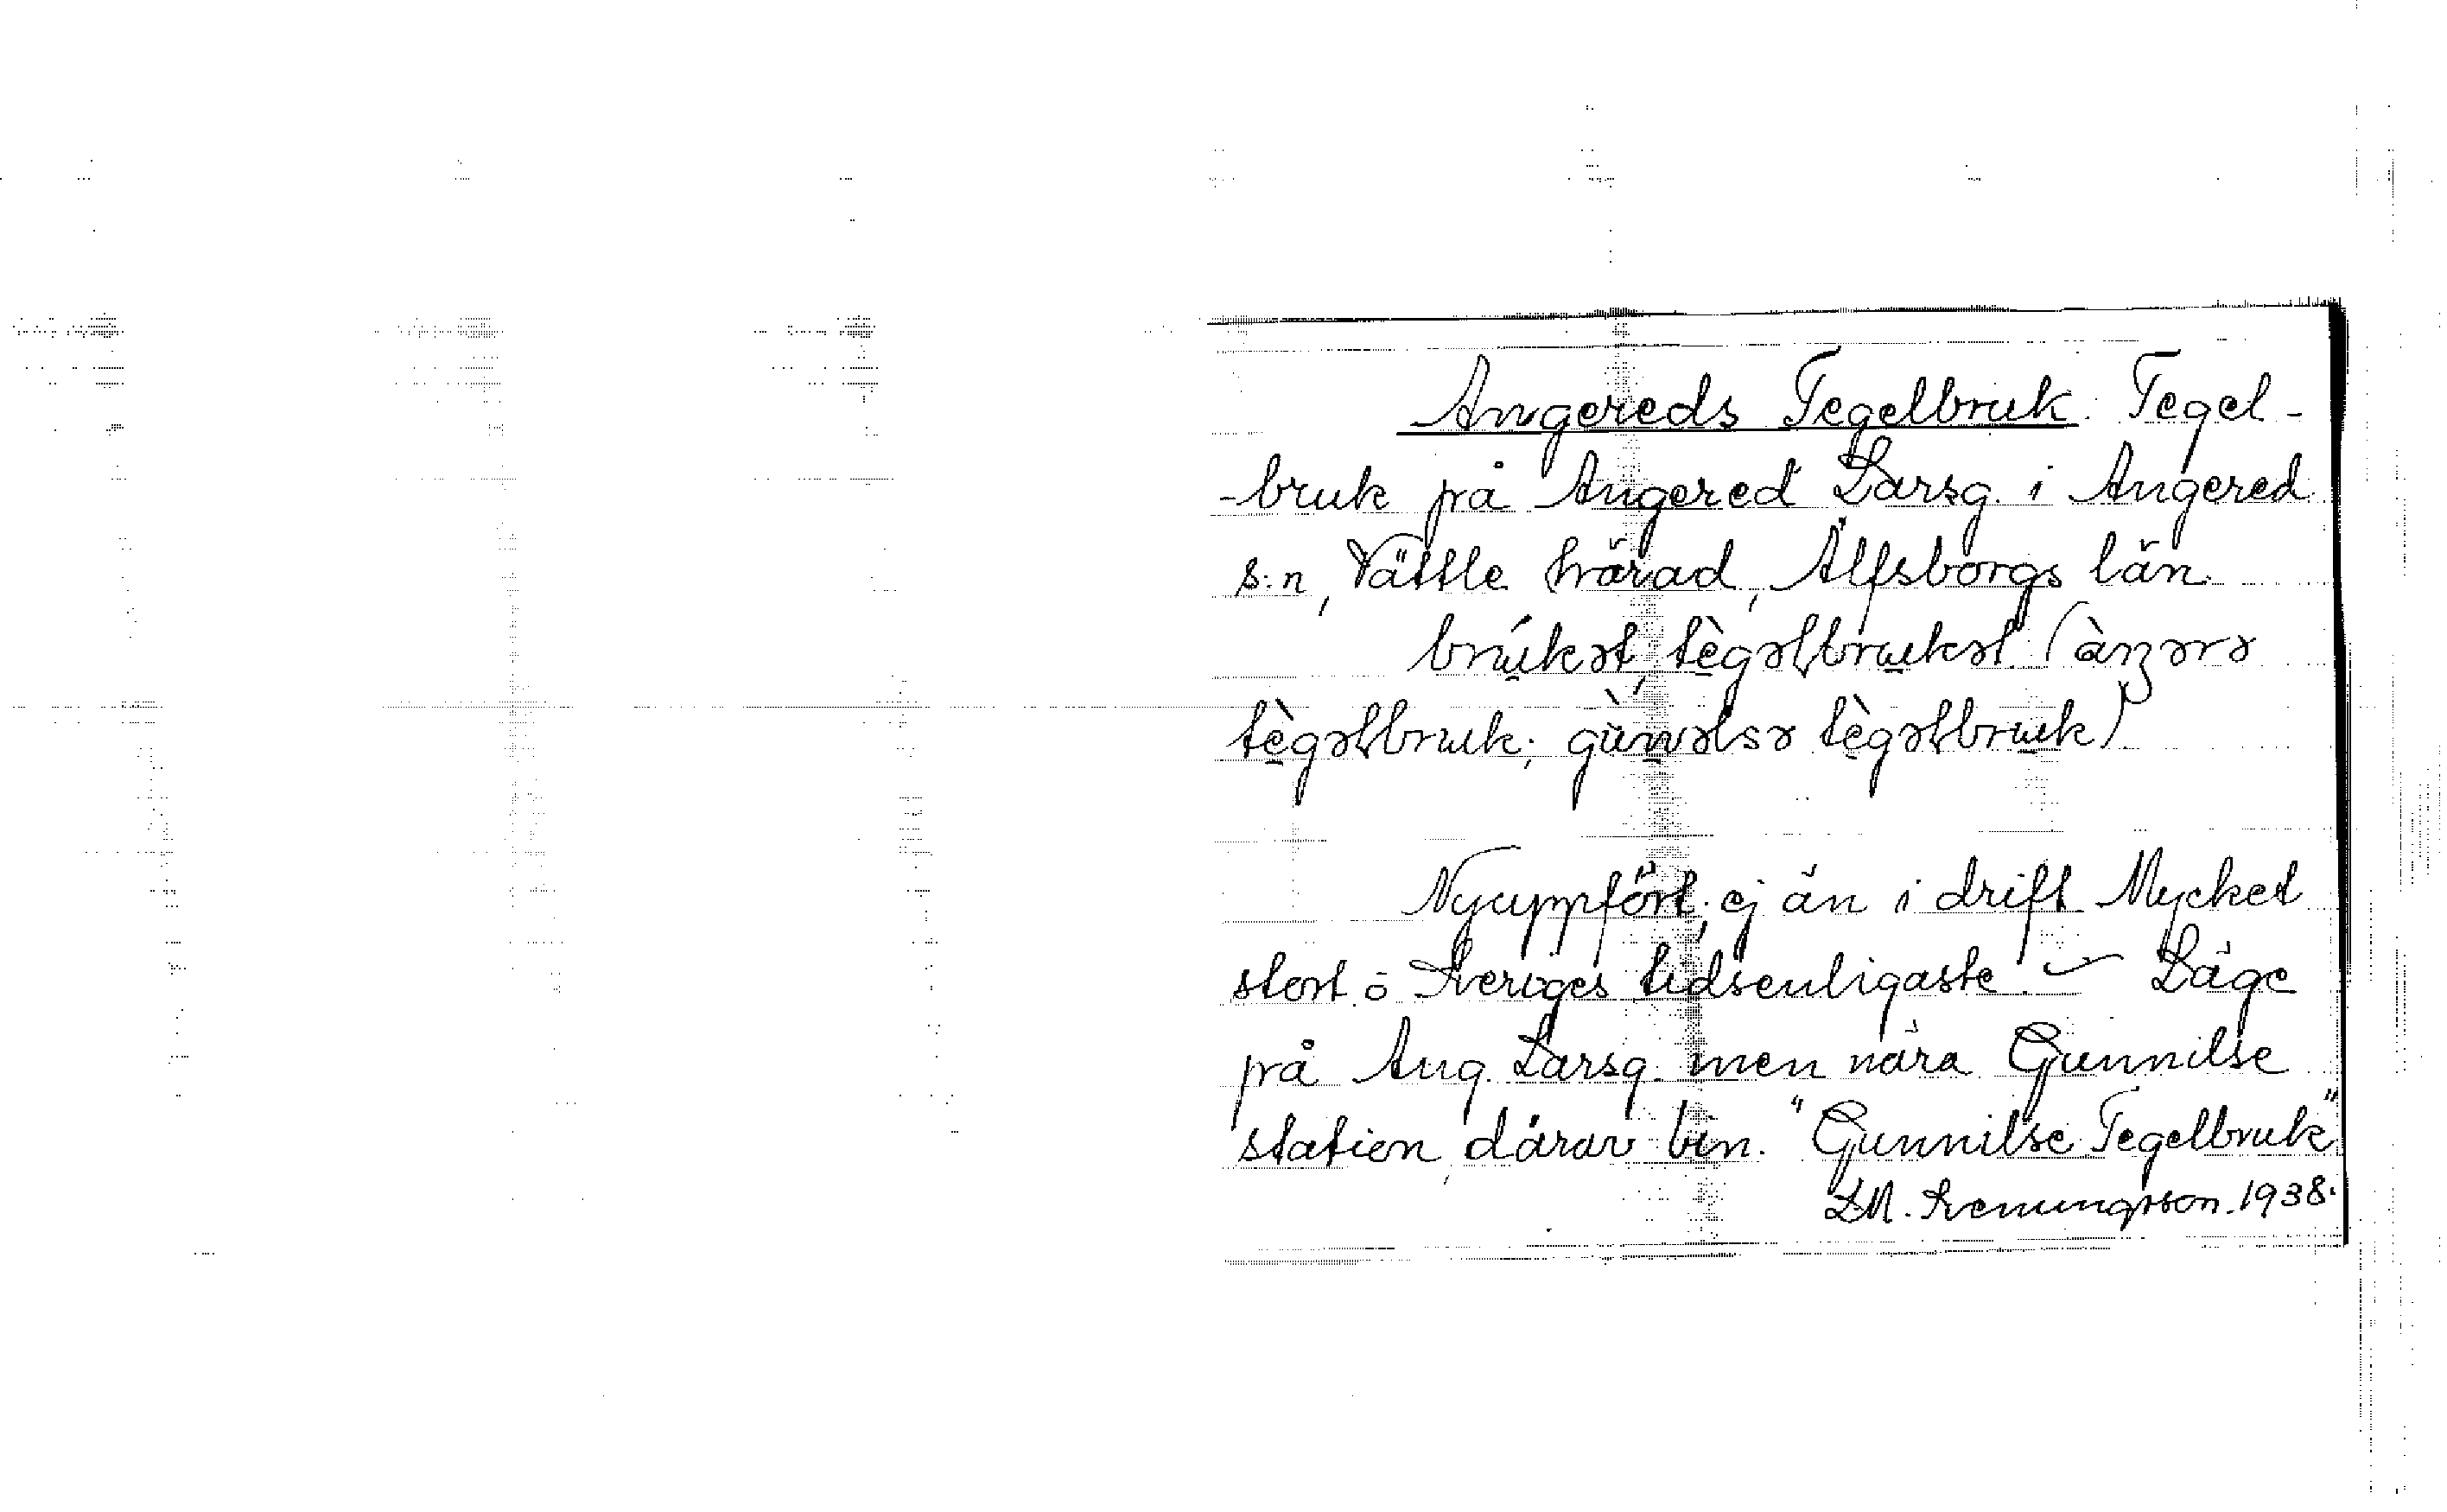 Angereds Tegelbruk. Tegel-
-bruk på Angered Larsg. i Angered
s:n, Vättle härad, Älfsborgs län.
brúkət, tègəlbrukət (àŋərə
tègəlbruk; gùnəlsə tègəlbruk)
Nyuppfört; ej än i drift. Mycket
stort o Sveriges tidsenligaste. ~ Läge
på Ang. Larsg. men nära Gunnilse
station, därav bin. "Gunnilse Tegelbruk"
1938.